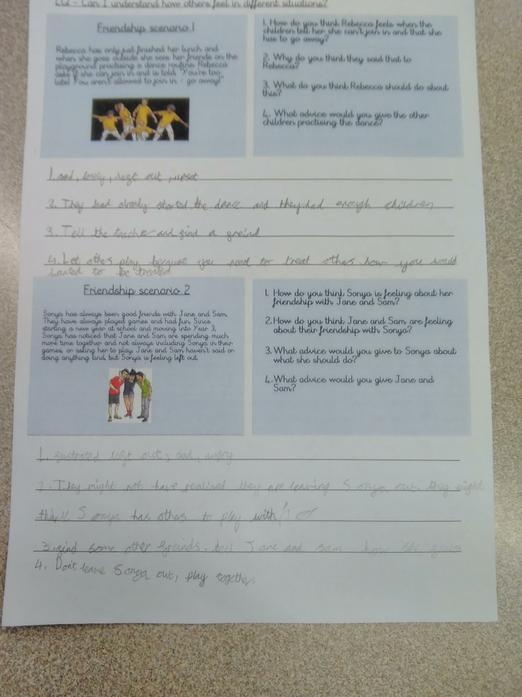 LQ - Can I understand how others feel in different situations?
Friendship scenario 1
Rebecca has only just finished her lunch and
when she goes outside she sees her friends on the
playground practising a dance routine. Rebecca
asks if she can join in and is told 'You're too
late! You aren't allowed to join in - go away!'
1. How do you think Rebecca feels when the
children tell her she can't join in and that she
has to go away?
2. Why do you think they said that to
Rebecca?
3. What do you think Rebecca should do about
this?
4. What advice would you give the other
children practising the dance?
1. sad, lonly, left out, upset
2. They had alredy started the dance and they had enough children
3. Tell the teacher and find a freind
4. Let others play because you need to treat others how you would
wanted to be treated
Friendship scenario 2
Sonya has always been good friends with Jane and Sam.
They have always played games and had fun. Since
starting a new year at school and moving into Year 3,
Sonya has noticed that Jane and Sam are spending much
more time together and not always including Sonya in their
games, or asking her to play. Jane and Sam haven't said or
doing anything kind, but Sonya is feeling left out.
1. How do you think Sonya is feeling about her
friendship with Jane and Sam?
2. How do you think Jane and Sam are feeling
about their friendship with Sonya?
3. What advice would you give to Sonya about
what she should do?
4. What advice would you give Jane and
Sam?
1. left out, sad, angry
2. They might not have realised they are leaving Sonya out. they might
think Sonya has others to play with
3. find some other freinds. tell Jane and sam how she
4. Don't leave Sonya out, play together